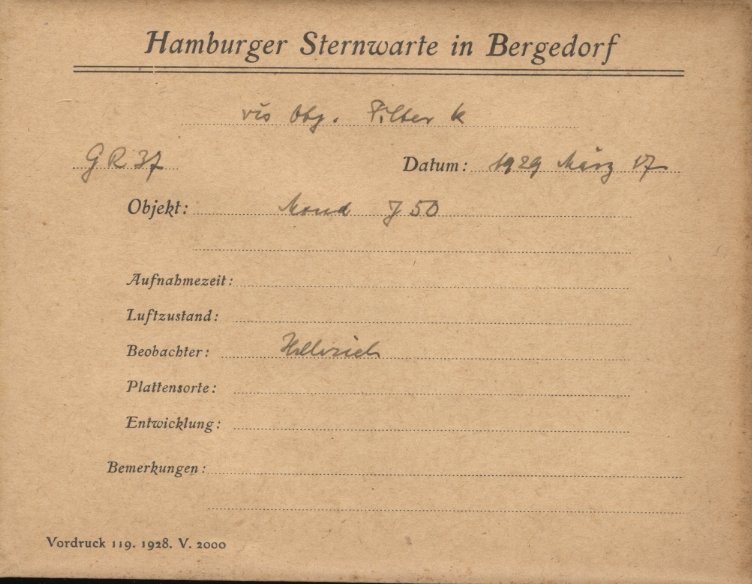 Hamburger Sternwarte in Bergedorf
vis Obj. Filter k
GR 37 Datum: 1929 März 17
Objekt: Mond J 50
Aufnahmezeit:
Luftzustand:
Beobachter:
Plattensorte:
Entwicklung:
Bemerkungen:
Vordruck 119. 1928. V. 2000